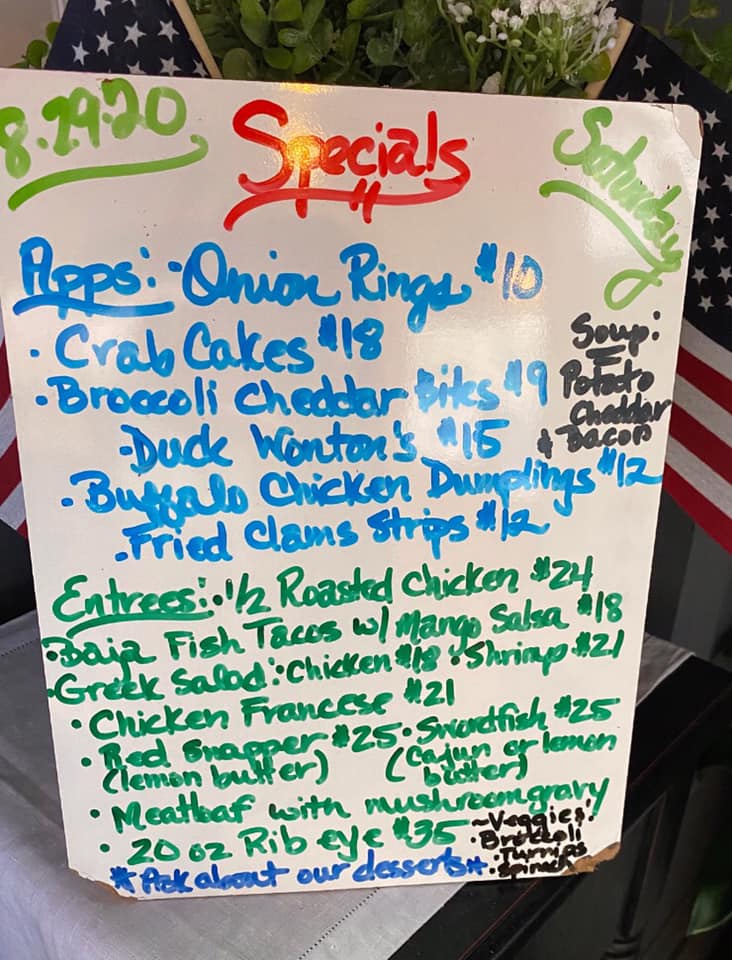 8.29.20
Specials
Saturday
Apps: • Onion Rings $10
• Crab Cakes $18
• Broccoli Cheddar Bites $9
• Duck Wonton's $15
• Buffalo Chicken Dumplings $12
• Fried Clams Strips $12
Soup:
Potato
Cheddar
& Bacon
Entrees: • 1/2 Roasted Chicken $24
• Baja Fish Tacos w/ Mango Salsa $18
• Greek Salad: Chicken $18 • Shrimp $21
• Chicken Francese $21
• Red Snapper $25 • Swordfish $25
(lemon butter) (Cajun or lemon
butter)
• Meatloaf with mushroom gravy
• 20 oz Rib eye $35
~Veggies:
• Broccoli
• Turnips
• Spinach
* Ask about our desserts *